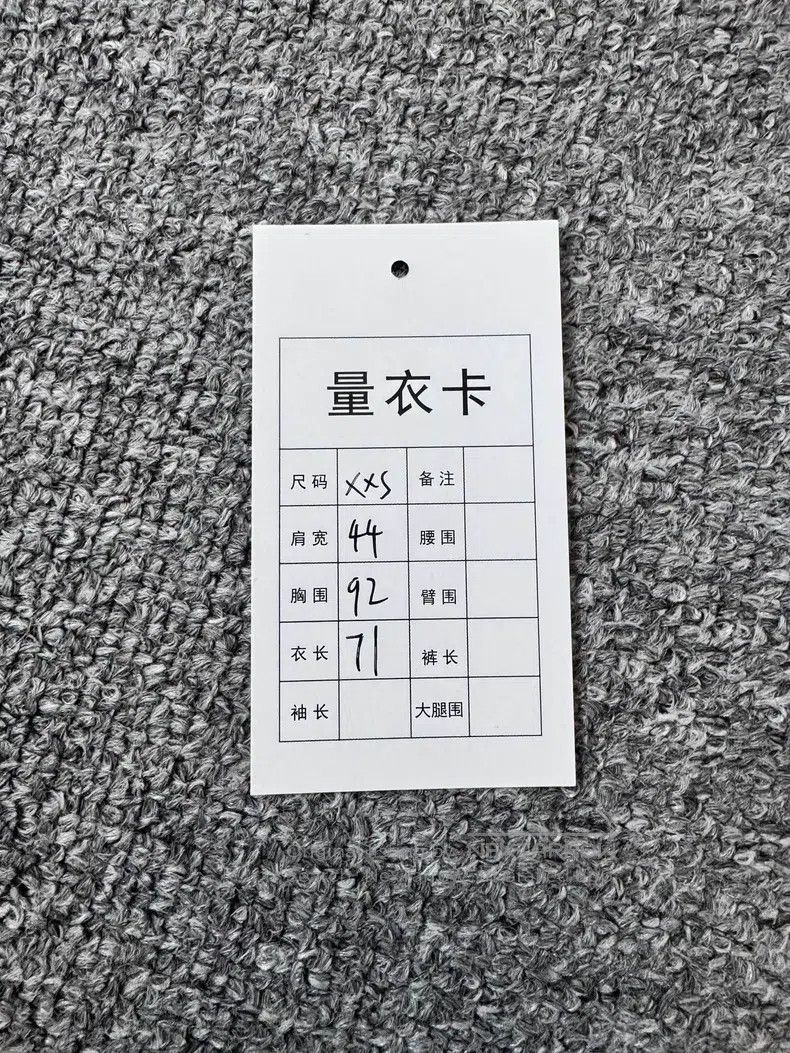 量衣卡
尺码 XXS 备注
肩宽 44 腰围
胸围 92 臂围
衣长 71 裤长
袖长 大腿围